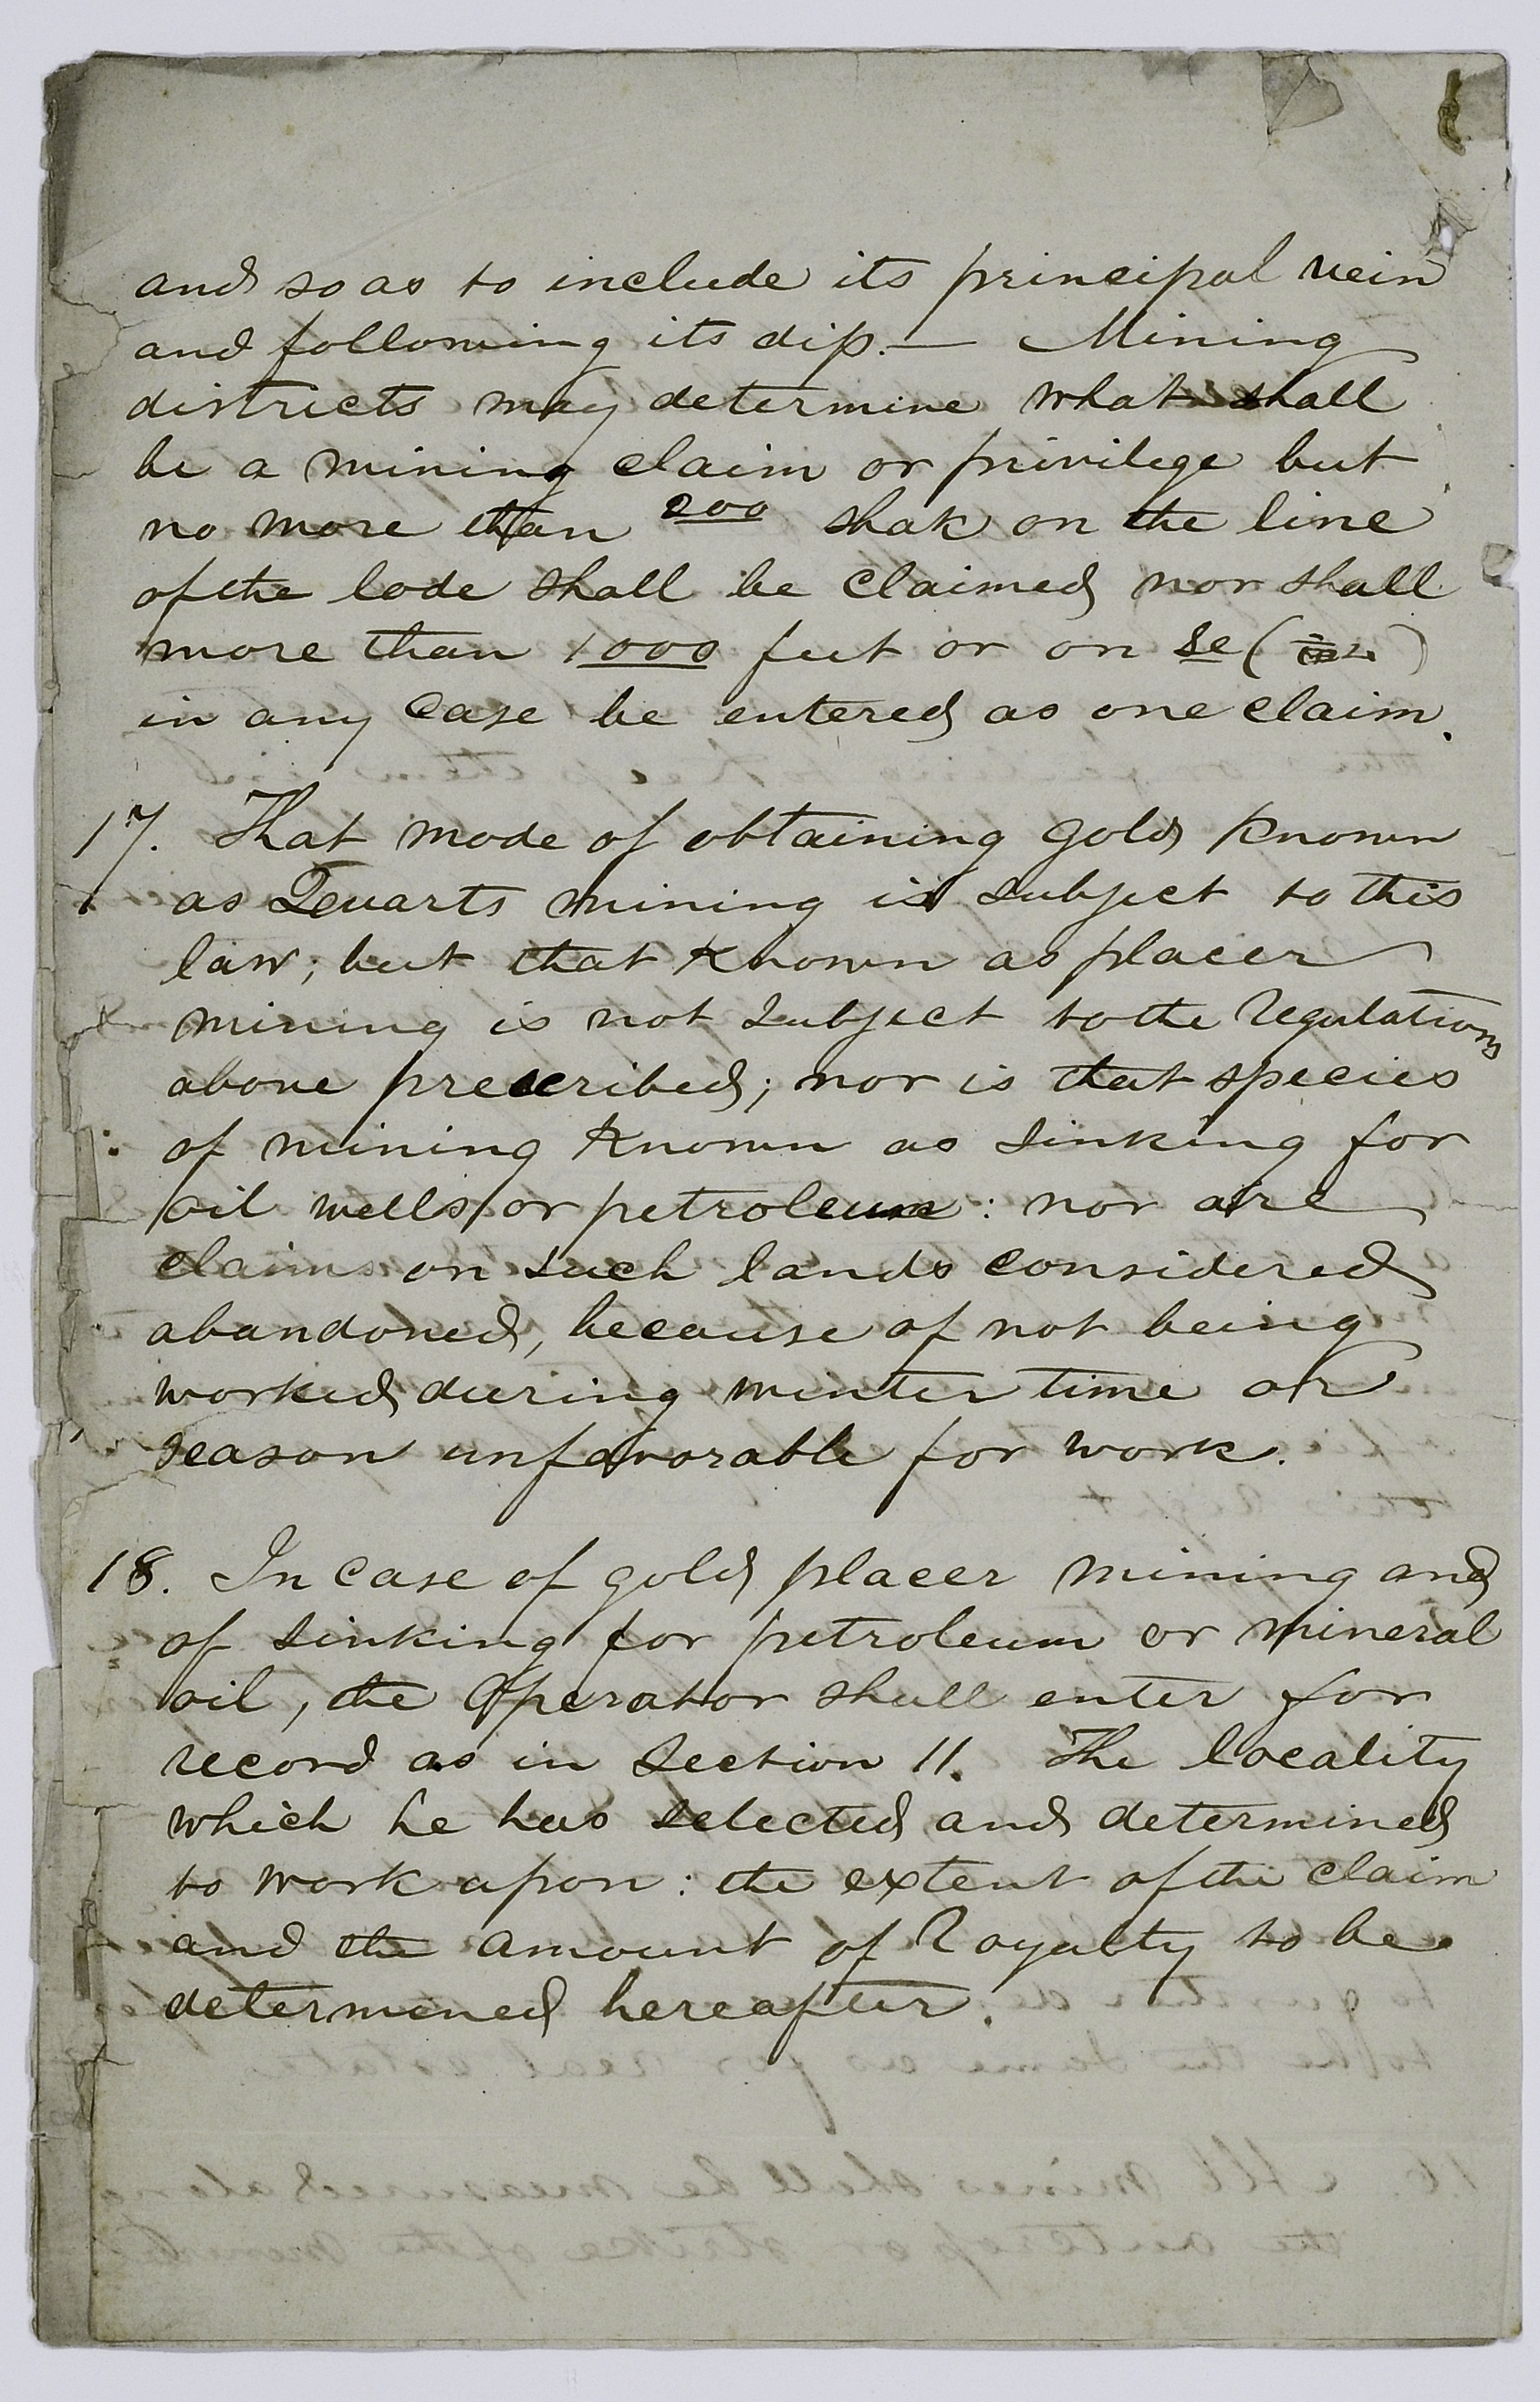 and so as to include its principal vein
and following its dip.— Mining
districts may determine what shall
be a mining claim or privilege but
no more than 200 shak on the line
of the lode shall be claimed nor shall
more than 1000 feet or on se (
in any case be entered as one claim.
17. That mode of obtaining gold known
as Quarts mining is subject to this
law; but that known as placer
mining is not subject to the regulations
above prescribed; nor is that species
of mining known as sinking for
oil wells or petroleum: nor are
claims on such lands considered
abandoned, because of not being
worked during winter time or
season unfavorable for work.
18. In case of gold placer mining and
of sinking for petroleum or mineral
oil, the Operator shall enter for
record as in Section 11. The locality
which he has selected and determined
to work upon: the extent of the claim
and the amount of Royalty to be
determined hereafter.